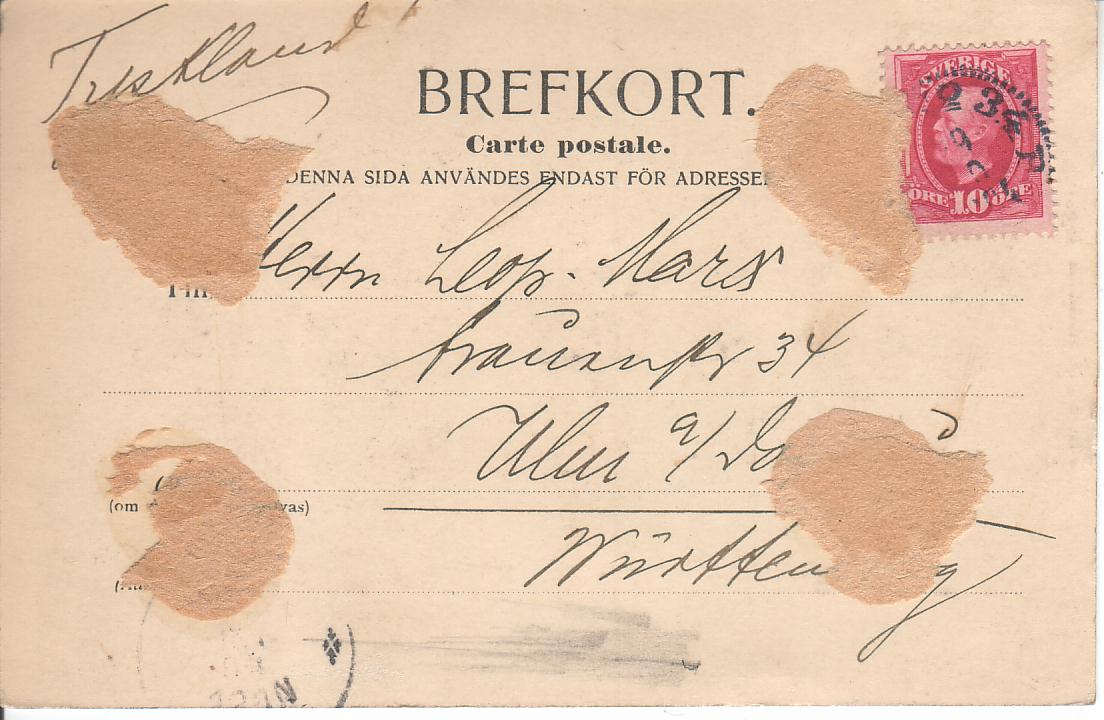 Tyskland
BREFKORT.
Carte postale.
DENNA SIDA ANVÄNDES ENDAST FÖR ADRESSE
SVERIGE
10 ÖRE
Herrn Leop. Marx
Frauenstr 34
Ulm a/Do
(om vas)
Württem g